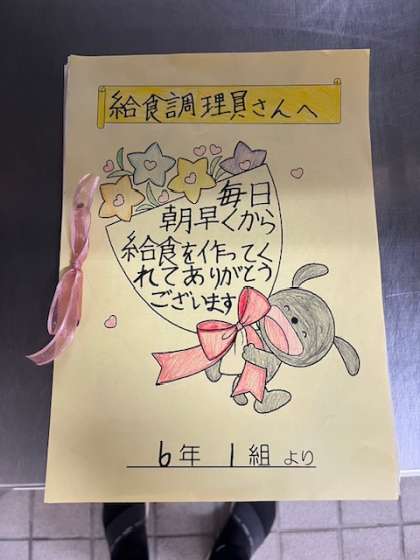 給食調理員さんへ
毎日
朝早くから
給食を作ってく
れてありがとう
ございます
6年 1組 より